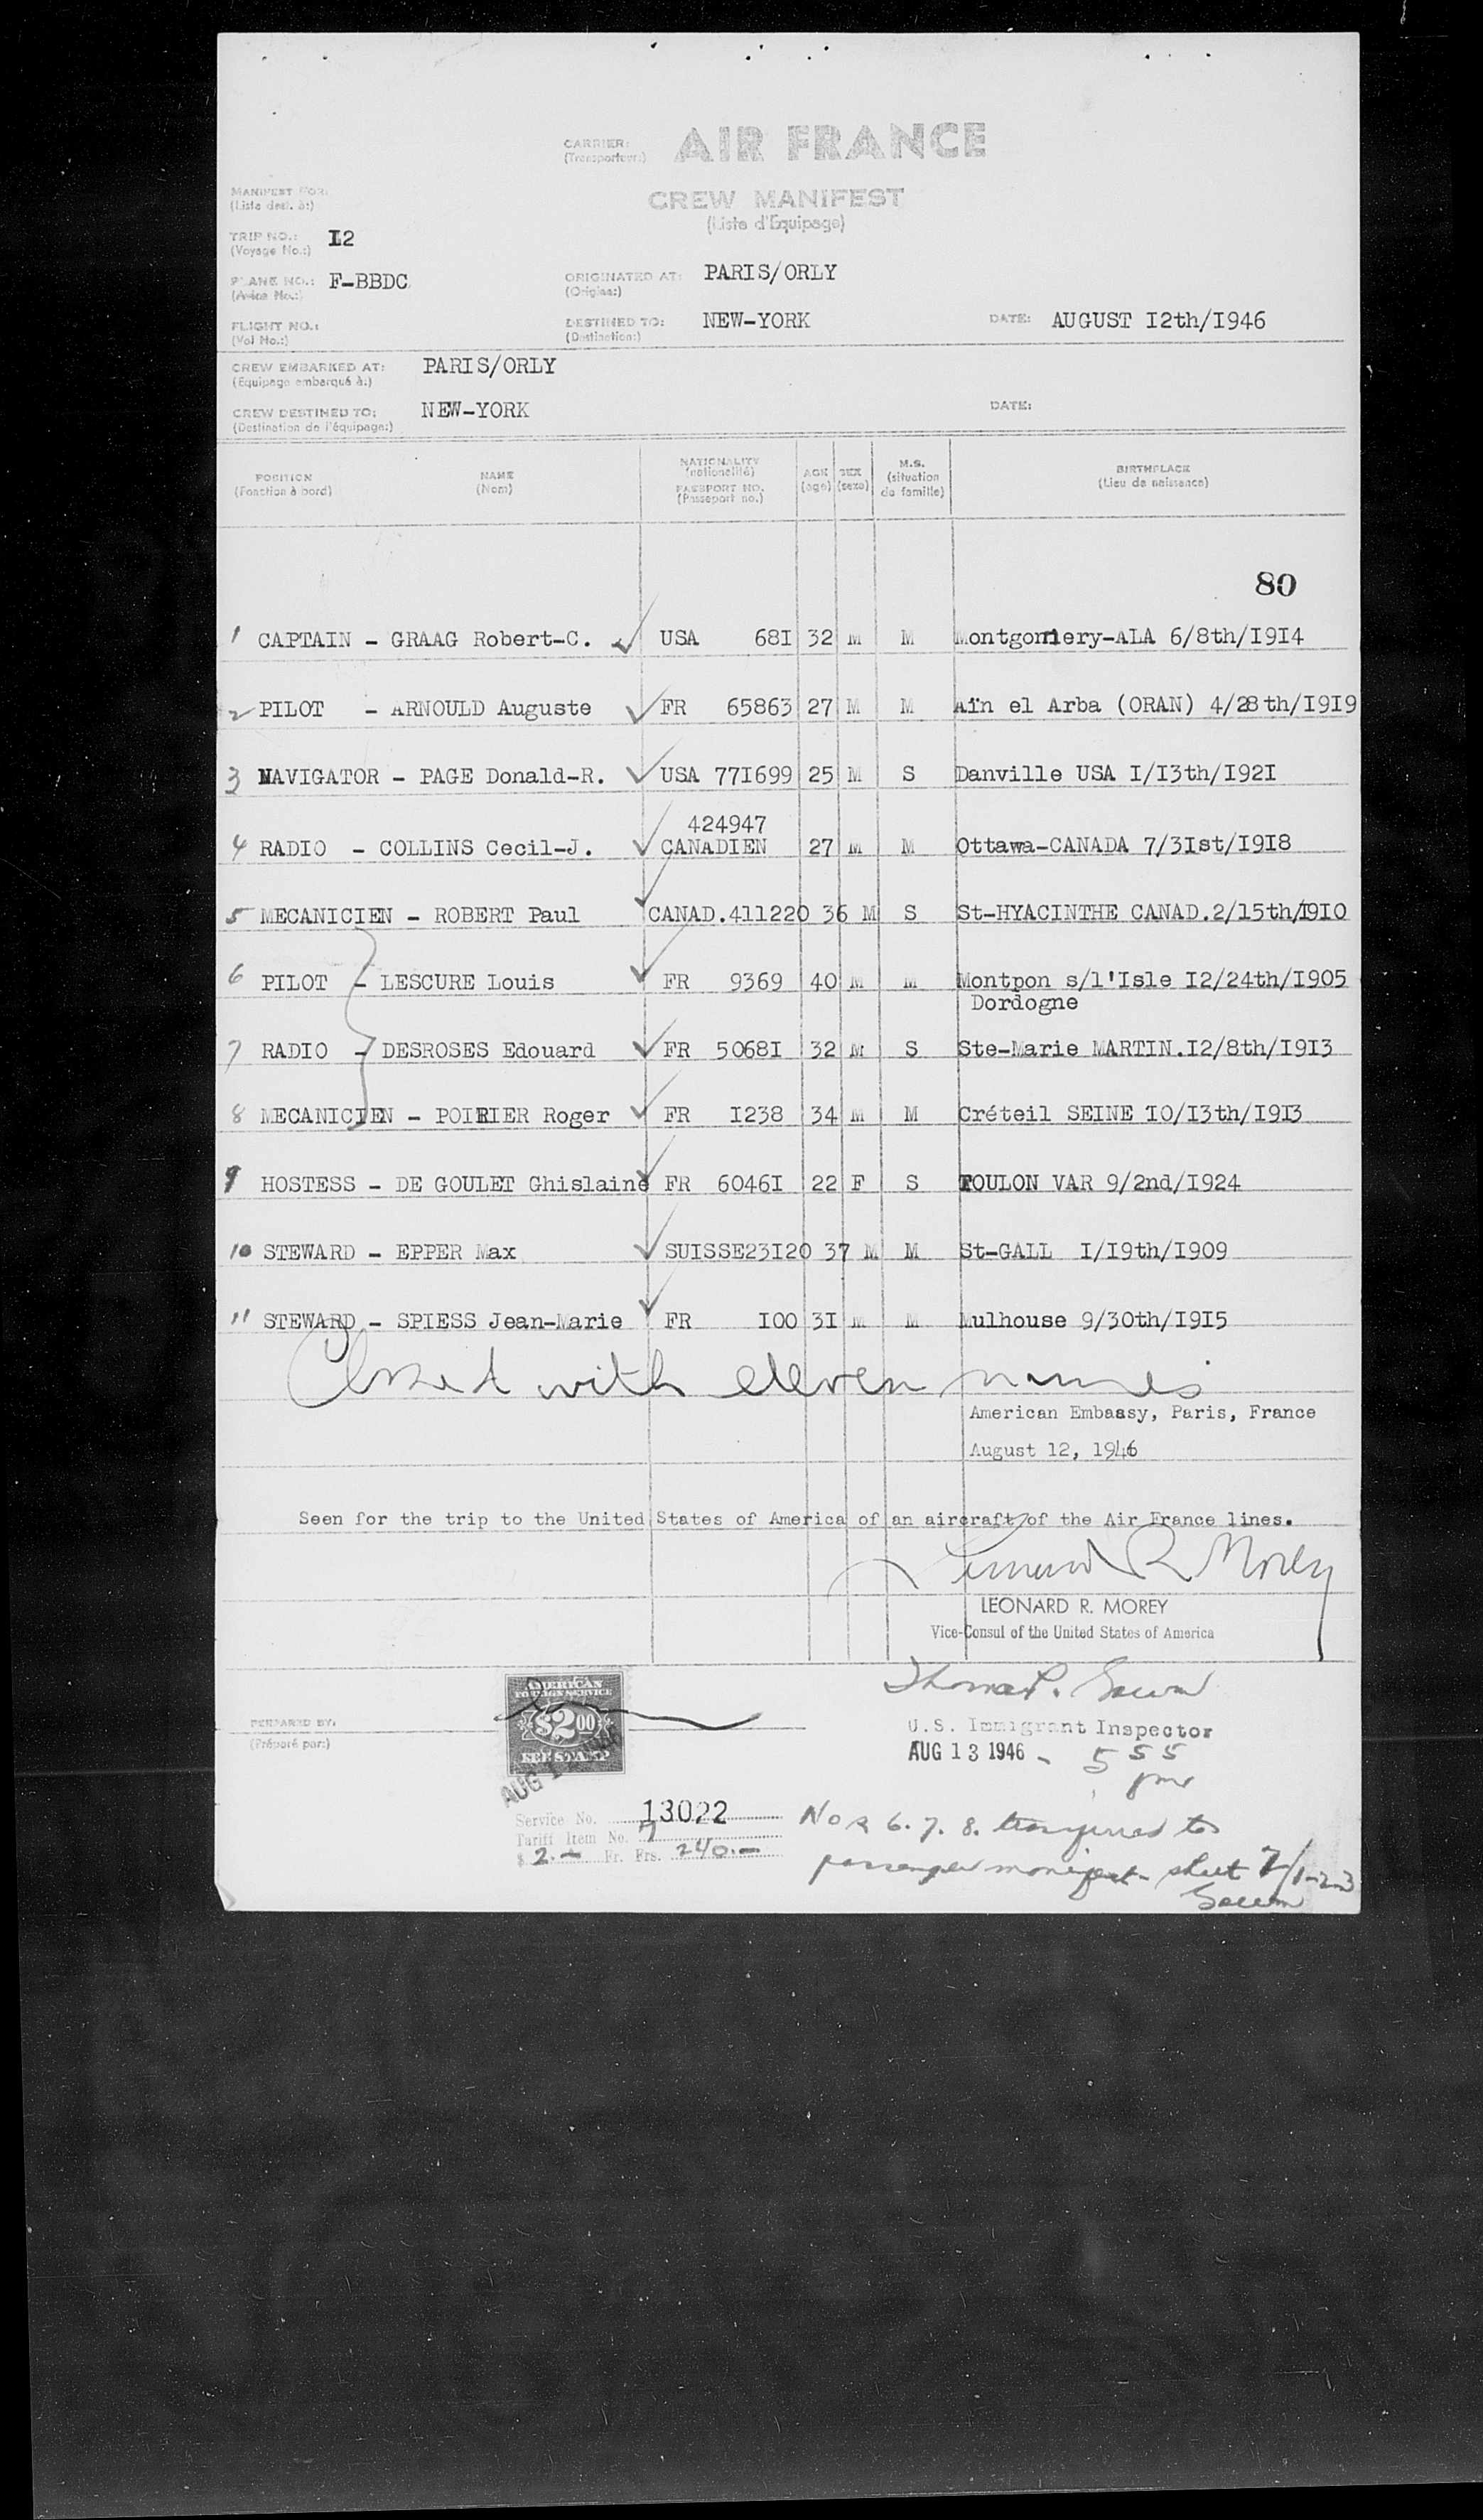 CARRIER: AIR FRANCE
(Transporteur:)
CREW MANIFEST
(Liste d'Equipage)
MANIFEST FOR:
(Liste dest. à:)
TRIP NO.: I2
(Voyage No.:)
PLANE NO.: F-BBDC ORIGINATED AT: PARIS/ORLY
(Avion No.:) (Origine:)
FLIGHT NO.: DESTINED TO: NEW-YORK DATE: AUGUST I2th/I946
(Vol No.:) (Destination:)
CREW EMBARKED AT: PARIS/ORLY
(Equipage embarqué à:)
CREW DESTINED TO: NEW-YORK DATE:
(Destination de l'équipage:)
POSITION NAME NATIONALITY AGE SEX M.S. BIRTHPLACE
(Fonction à bord) (Nom) (nationalité) (age) (sexe) (situation de famille) (Lieu de naissance)
PASSPORT NO.
(Passeport no.)
80
1 CAPTAIN - GRAAG Robert-C. USA 68I 32 M M Montgomery-ALA 6/8th/I9I4
2 PILOT - ARNOULD Auguste FR 65863 27 M M Aïn el Arba (ORAN) 4/28th/I9I9
3 NAVIGATOR - PAGE Donald-R. USA 77I699 25 M S Danville USA I/I3th/I92I
424947
4 RADIO - COLLINS Cecil-J. CANADIEN 27 M M Ottawa-CANADA 7/3Ist/I9I8
5 MECANICIEN - ROBERT Paul CANAD.411220 36 M S St-HYACINTHE CANAD.2/15th/I9I0
6 PILOT - LESCURE Louis FR 9369 40 M M Montpon s/l'Isle I2/24th/I905
Dordogne
7 RADIO - DESROSES Edouard FR 5068I 32 M S Ste-Marie MARTIN.I2/8th/I9I3
8 MECANICIEN - POIRIER Roger FR I238 34 M M Créteil SEINE I0/I3th/I9I3
9 HOSTESS - DE GOULET Ghislaine FR 6046I 22 F S TOULON VAR 9/2nd/I924
10 STEWARD - EPPER Max SUISSE23I20 37 M M St-GALL I/I9th/I909
11 STEWARD - SPIESS Jean-Marie FR I00 3I M M Mulhouse 9/30th/I9I5
Closed with eleven names
American Embassy, Paris, France
August 12, 1946
Seen for the trip to the United States of America of an aircraft of the Air France lines.
Leonard R Morey
LEONARD R. MOREY
Vice-Consul of the United States of America
AMERICAN
FOREIGN SERVICE
$2.00
FEE STAMP
AUG
PREPARED BY:
(Préparé par:)
Thomas P.
U.S. Immigrant Inspector
AUG 13 1946 - 5 55
pm
Service No. 13022
Tariff Item No. 7
$ 2.- Fr. Frs. 240.-
Nos 6. 7. 8. transferred to
passenger manifest - sheet 7/1-2-3